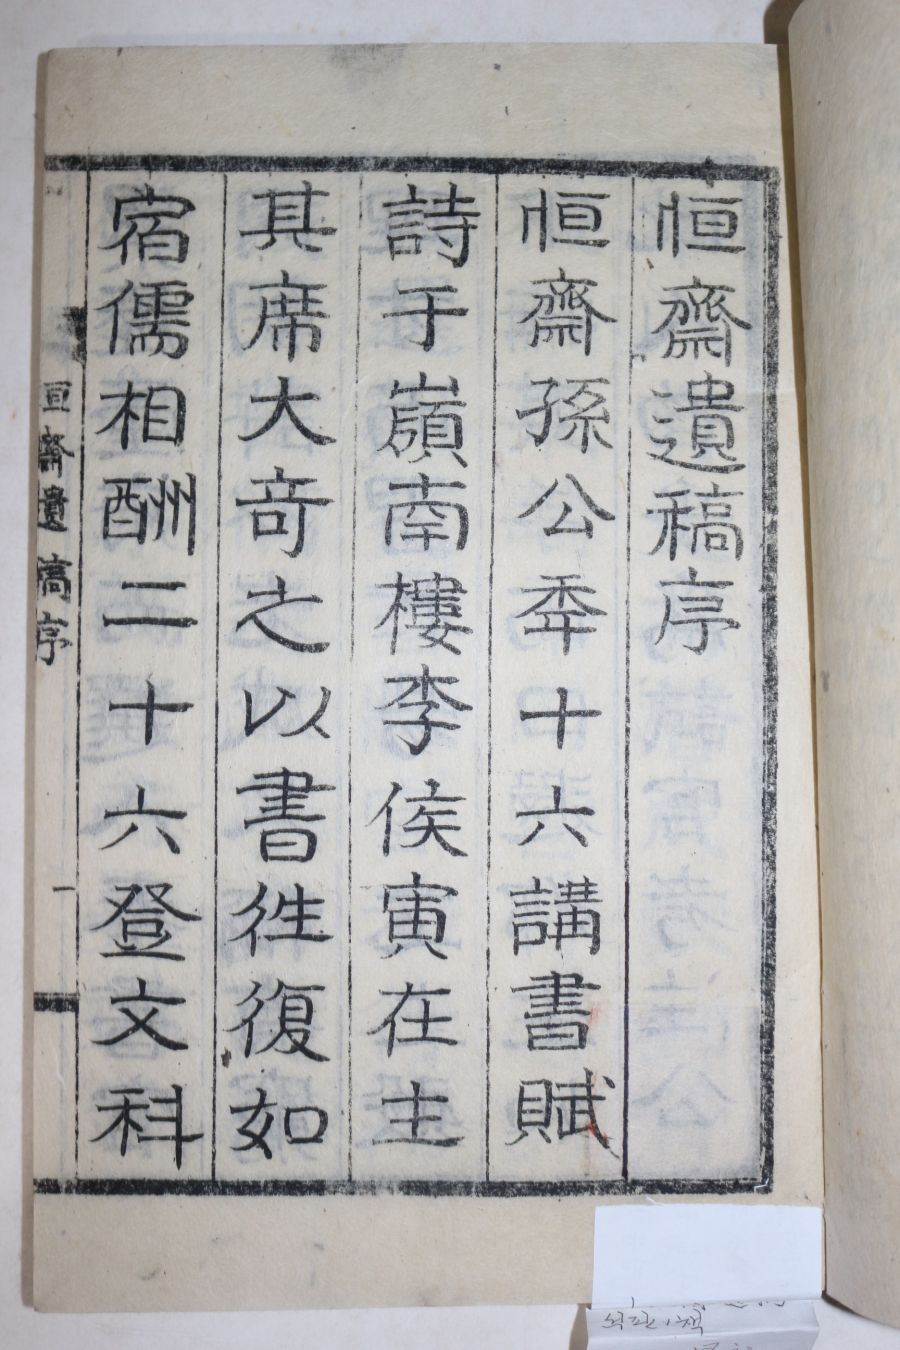 恒齋遺稿序
恒齋孫公秊十六講書賦
詩于嶺南樓李侯寅在主
其席大竒之以書徃復如
宿儒相酬二十六登文科
恒齋遺稿序
一